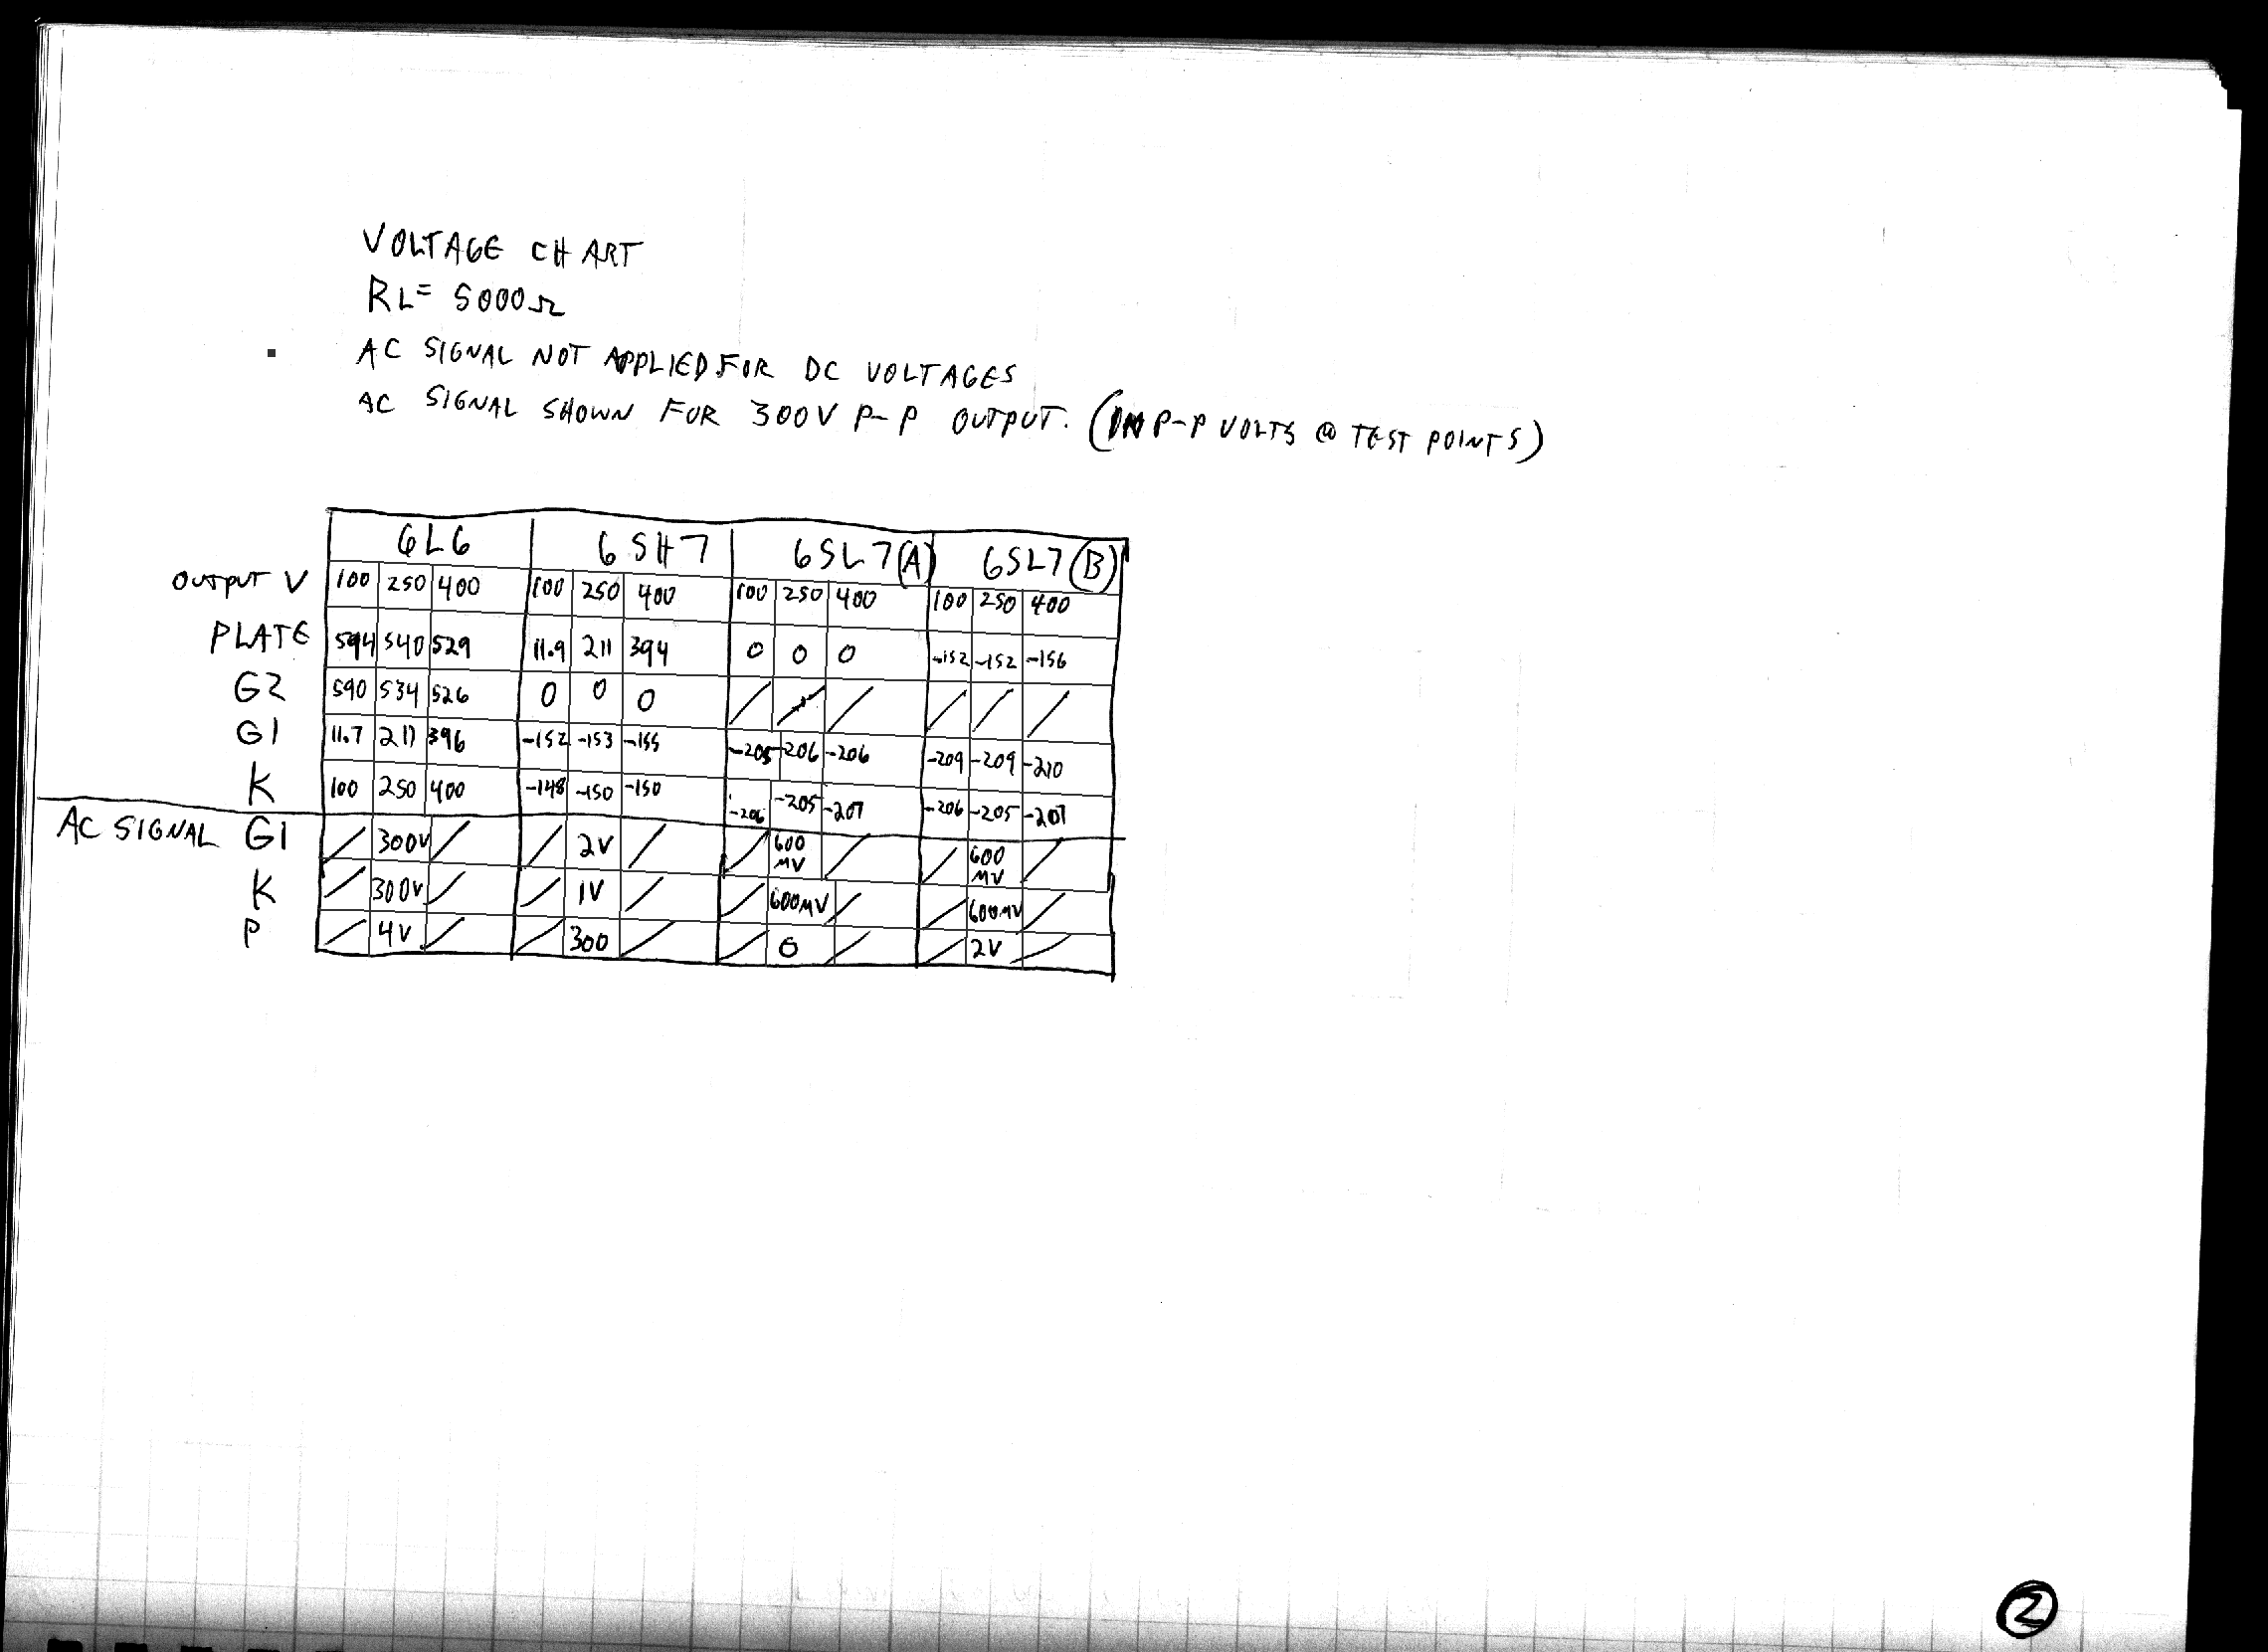 VOLTAGE CHART
RL= 5000Ω
AC SIGNAL NOT APPLIED FOR DC VOLTAGES
AC SIGNAL SHOWN FOR 300V P-P OUTPUT. (IN P-P VOLTS @ TEST POINTS)
6L6 6SH7 6SL7(A) 6SL7(B)
OUTPUT V 100 250 400 100 250 400 100 250 400 100 250 400
PLATE 594 540 529 11.9 211 394 0 0 0 -152 -152 -156
G2 590 534 526 0 0 0 / / / / / /
G1 11.7 211 396 -152 -153 -155 -205 -206 -206 -209 -209 -210
K 100 250 400 -148 -150 -150 -206 -205 -207 -206 -205 -207
AC SIGNAL G1 / 300V / / 2V / / 600 MV / / 600 MV /
K / 300V / / 1V / / 600MV / / 600MV /
P / 4V / / 300 / / 0 / / 2V /
2